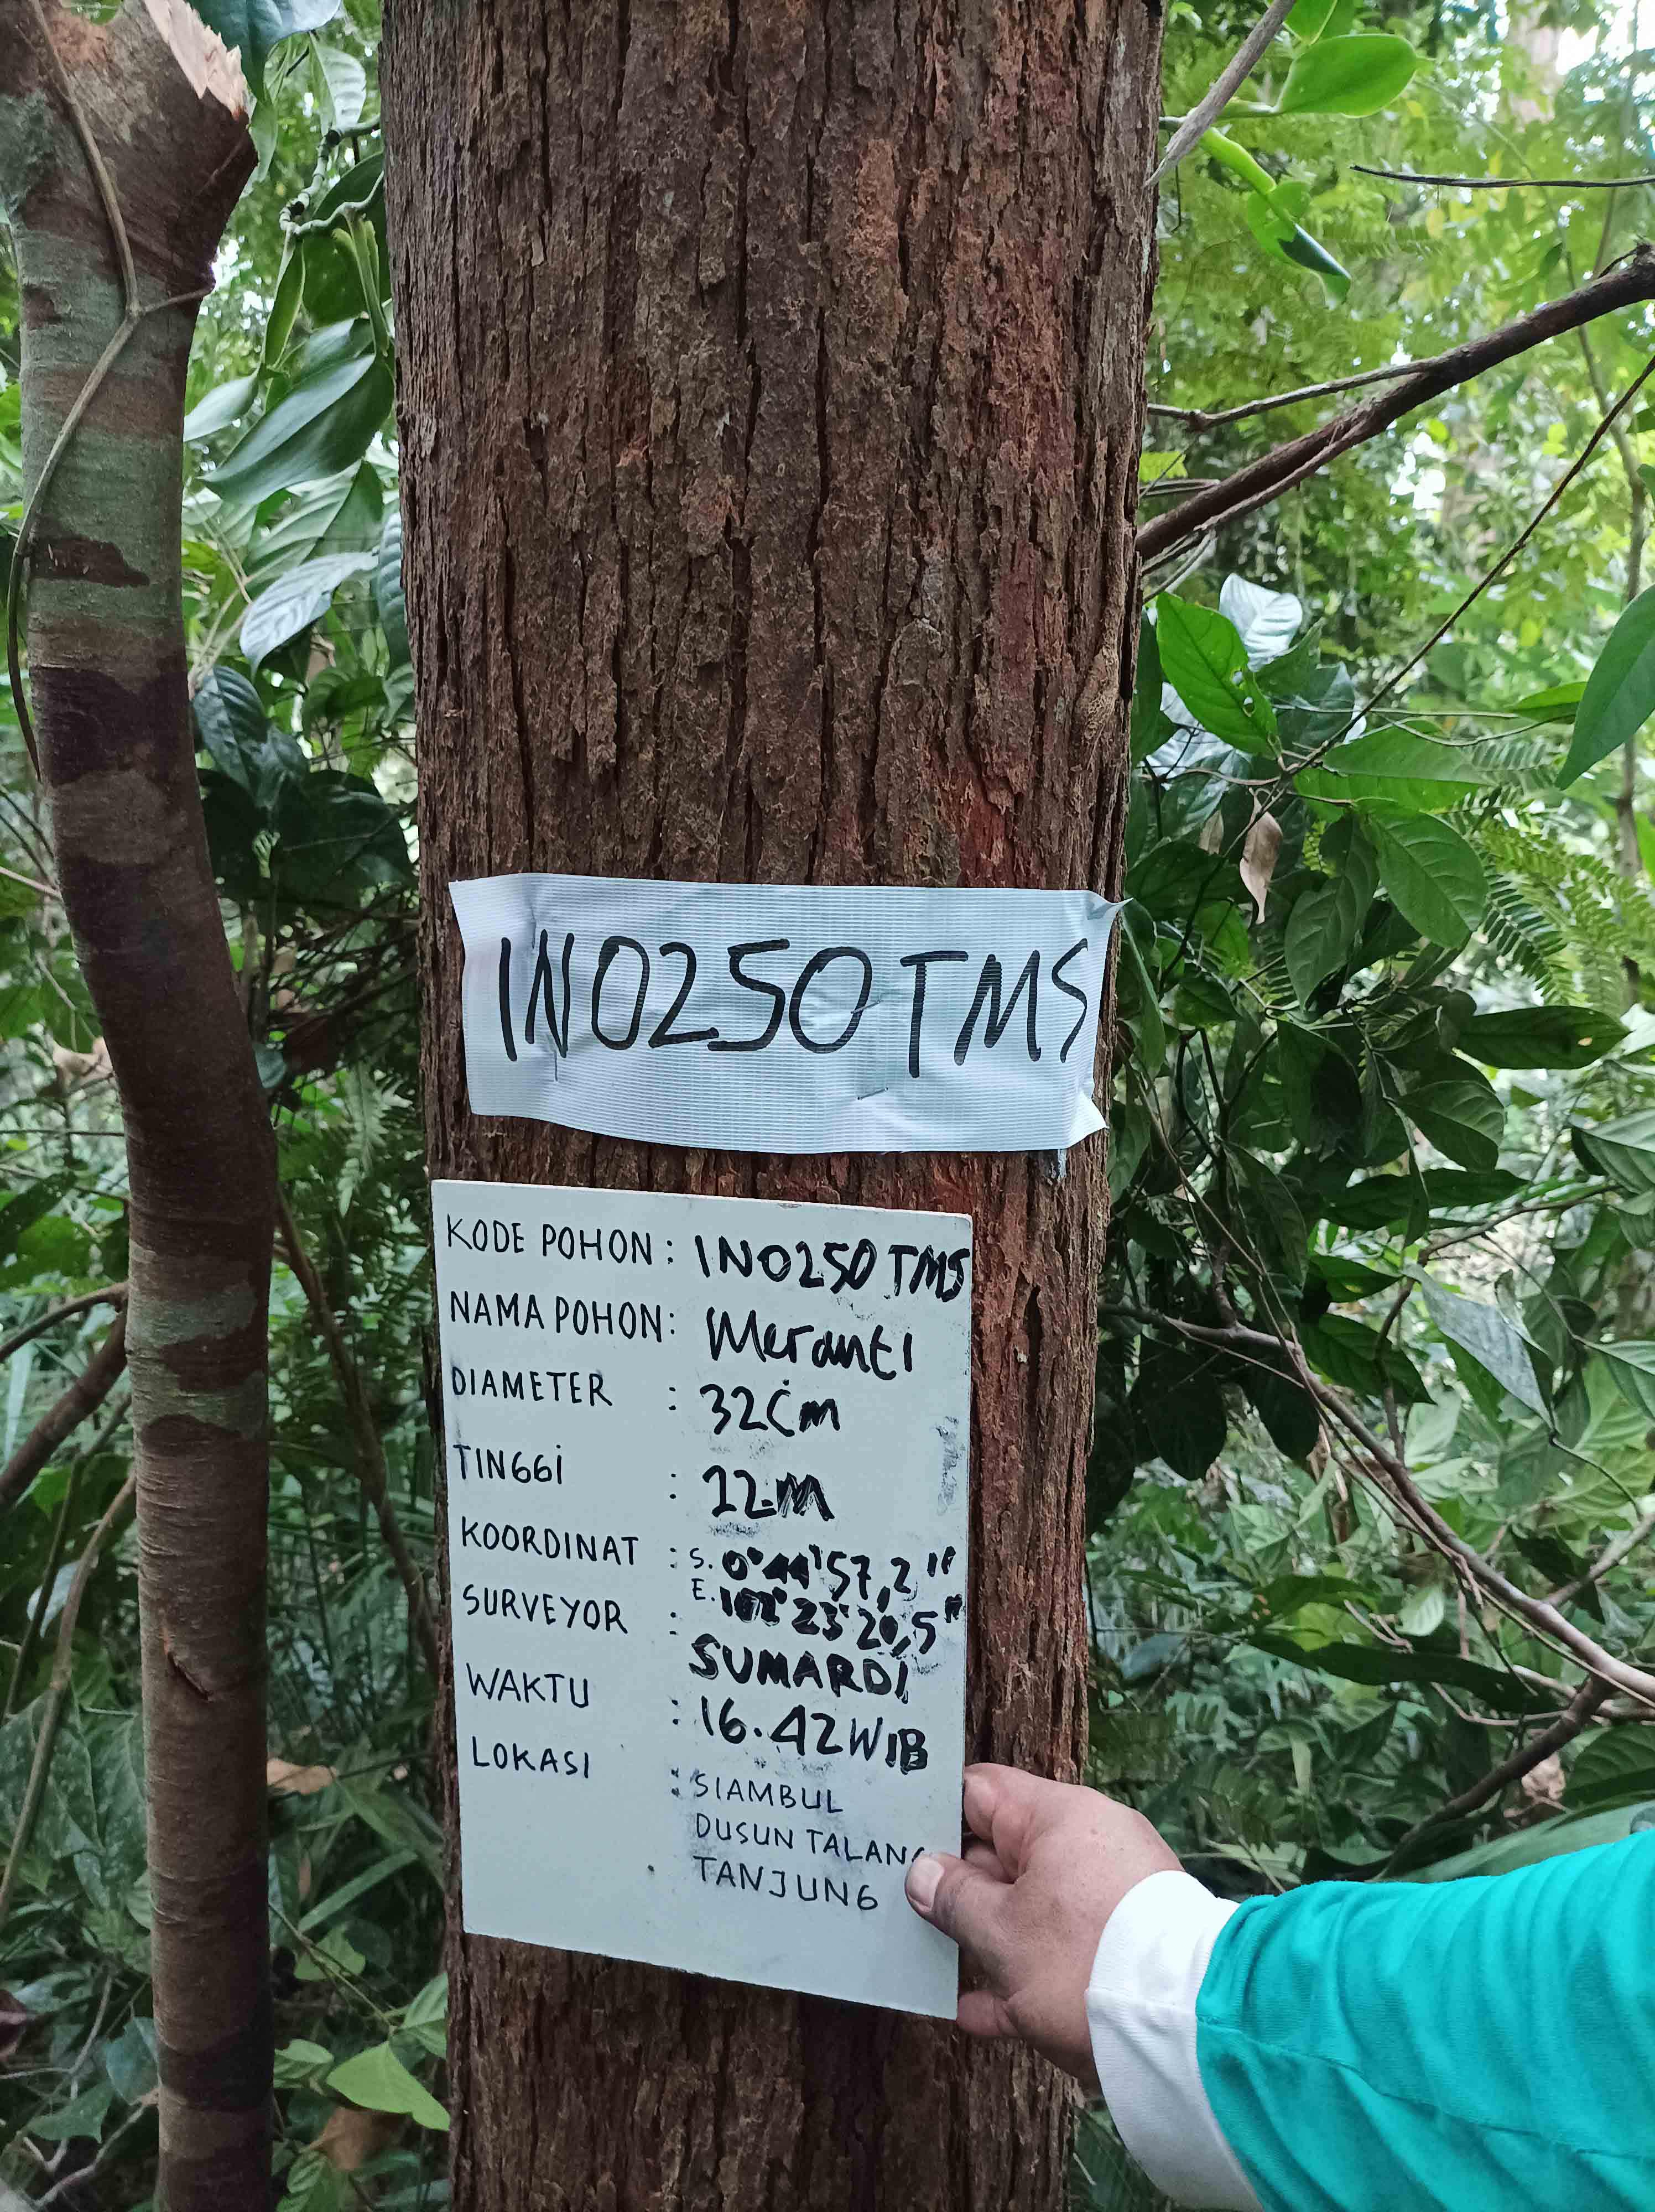 IN0250TMS
KODE POHON : IN0250 TMS
NAMA POHON : Meranti
DIAMETER : 32Cm
TINGGI : 12M
KOORDINAT : S. 0°44'57,2"
E. 102°23'20,5"
SURVEYOR : SUMARDI
WAKTU : 16.42 WIB
LOKASI : SIAMBUL
DUSUN TALANG
TANJUNG